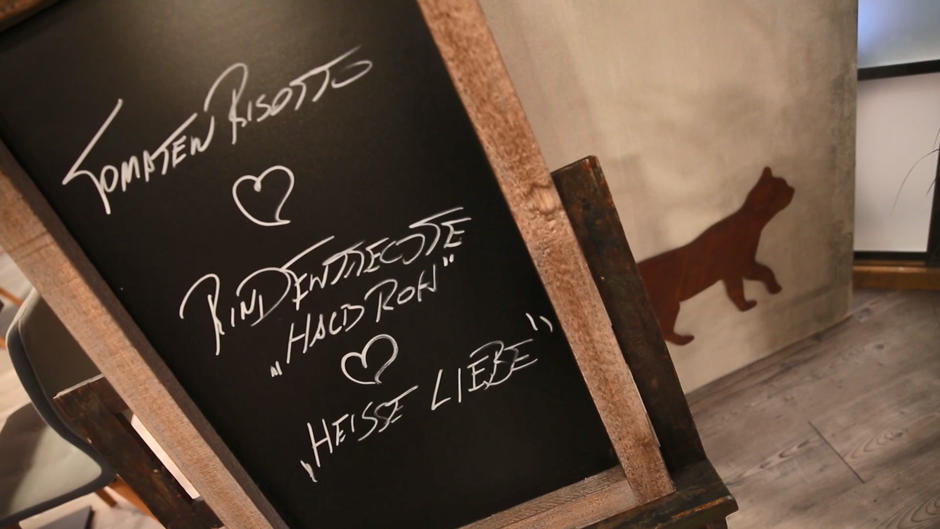 TOMATEN RISOTTO
RINDENTRECOTE
„HALB ROH"
„HEISSE LIEBE"